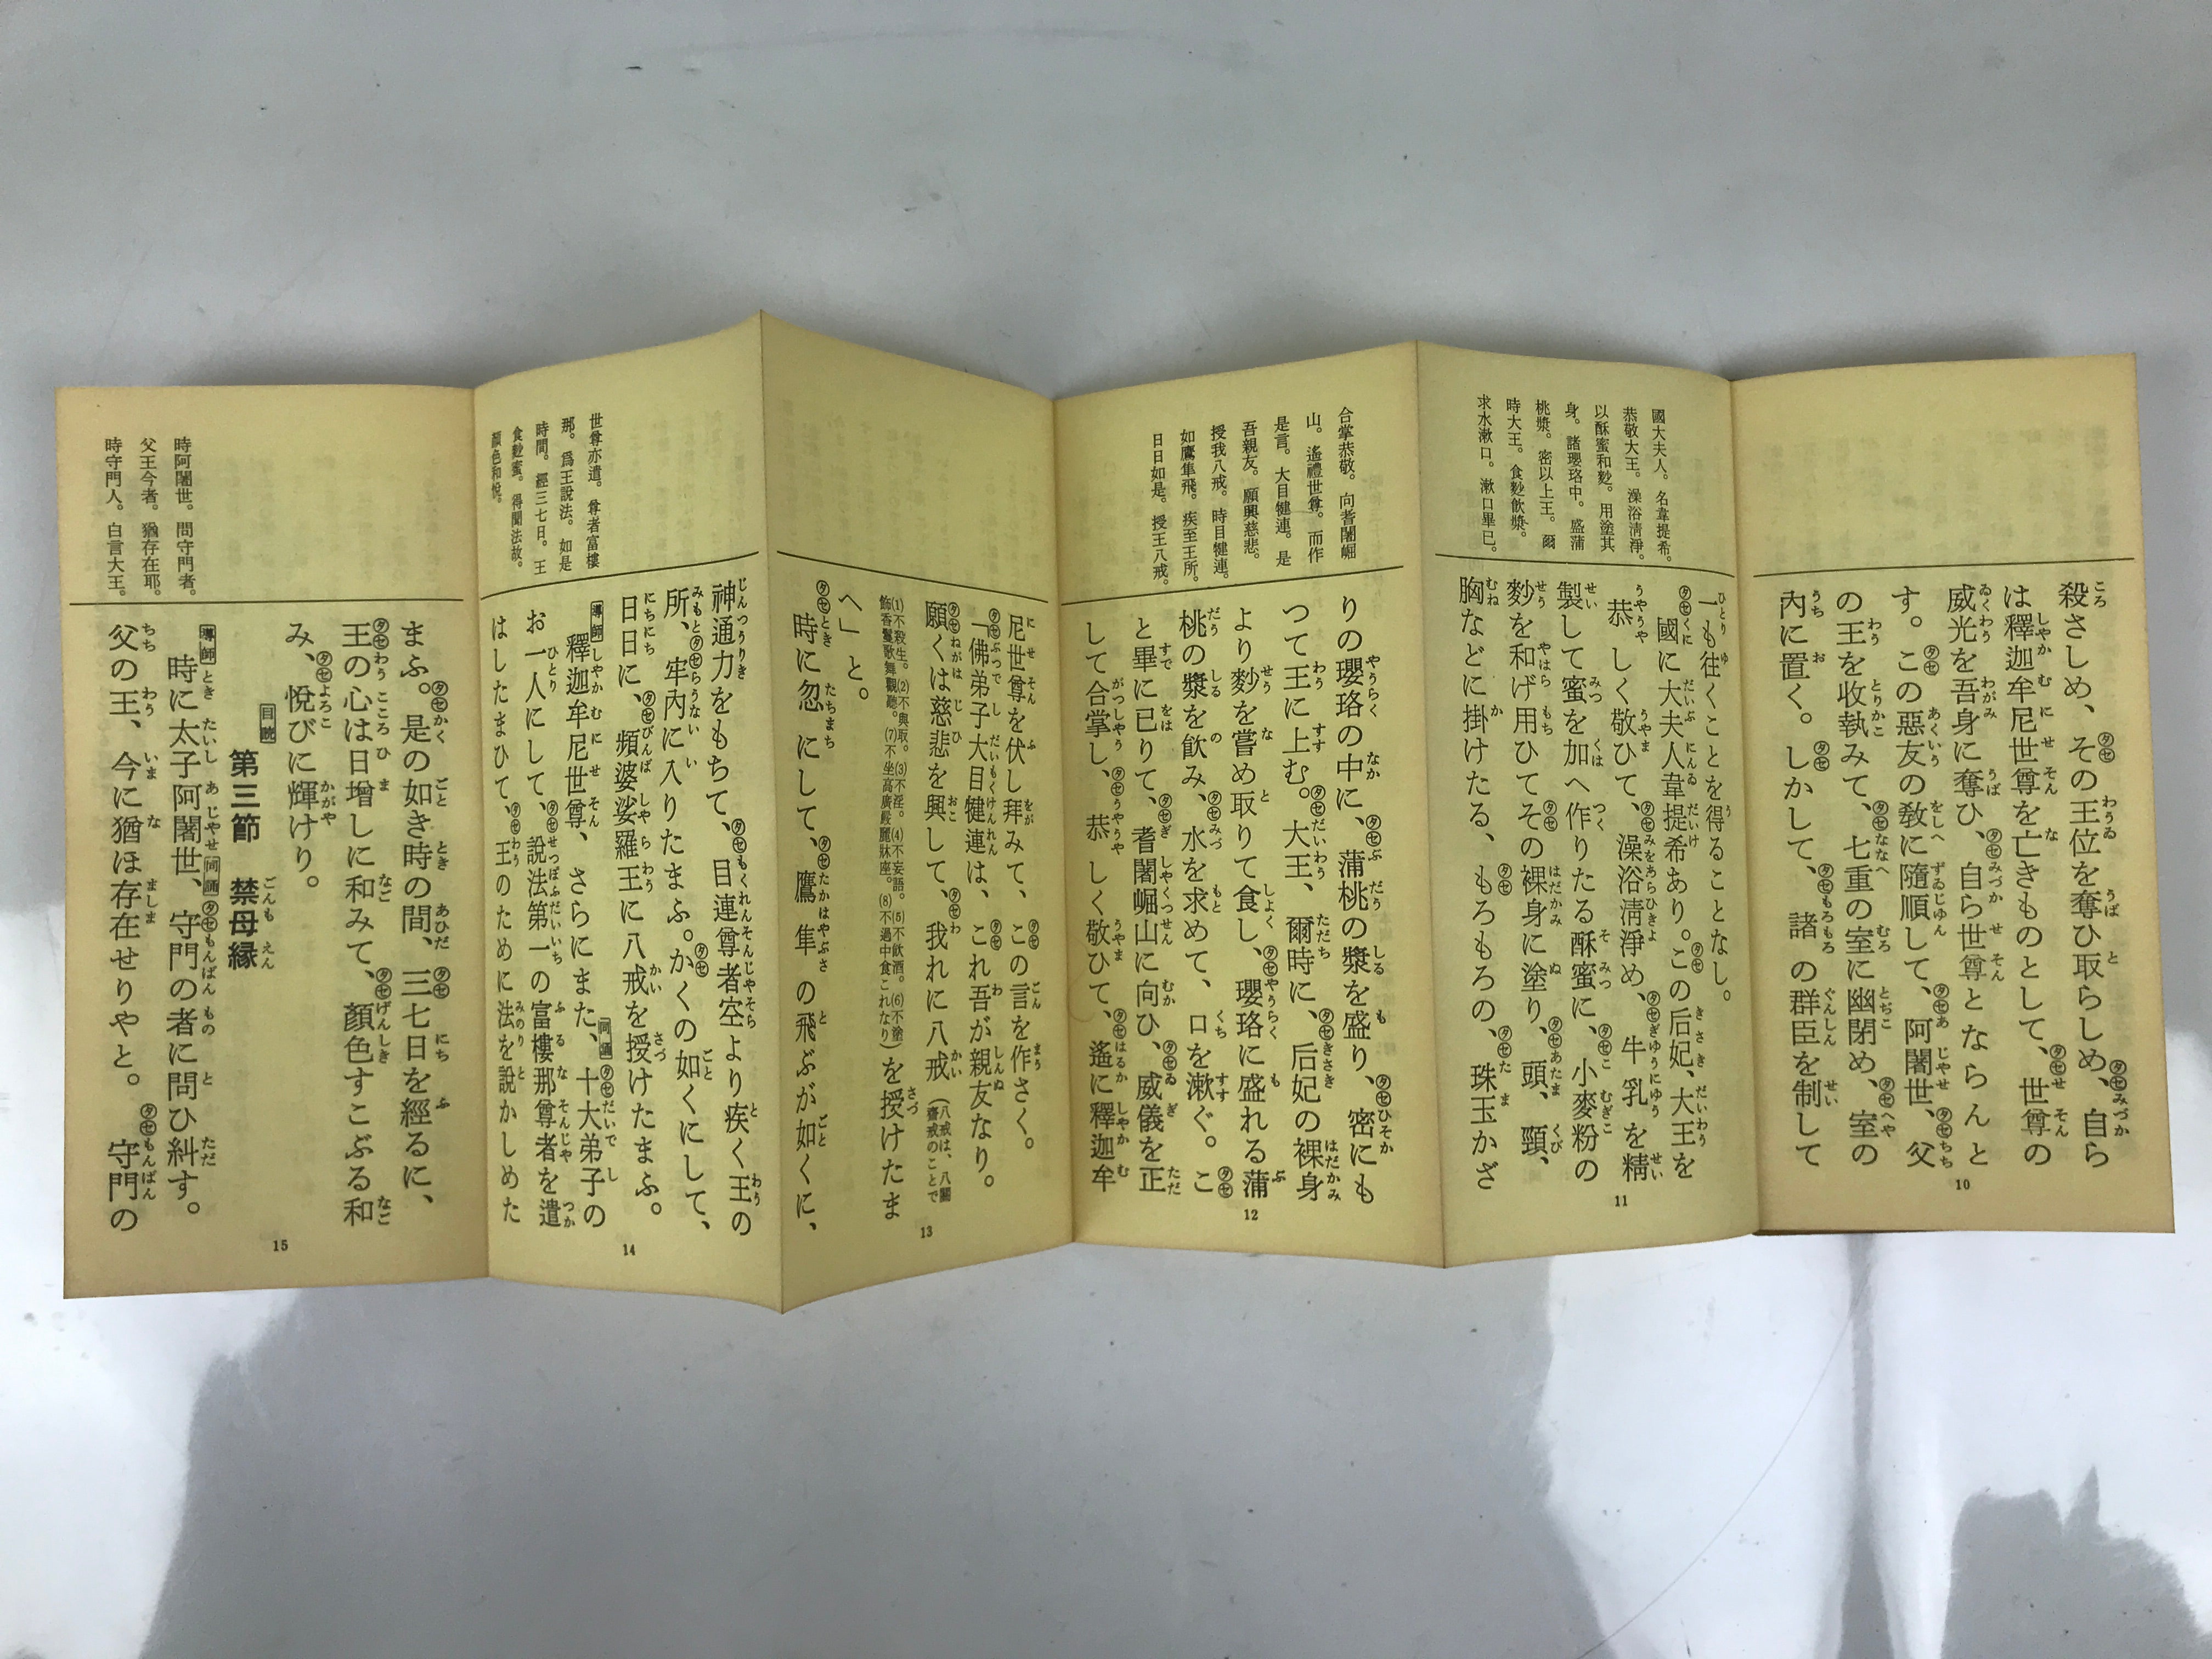 殺さしめ、その王位を奪ひ取らしめ、自ら
は釋迦牟尼世尊を亡きものとして、世尊の
威光を吾身に奪ひ、自ら世尊とならんと
す。この惡友の敎に隨順して、阿闍世、父
の王を收執みて、七重の室に幽閉め、室の
內に置く。しかして、諸の群臣を制して
10
國大夫人。名韋提希。
恭敬大王。澡浴淸淨。
以酥蜜和麨。用塗其
身。諸瓔珞中。盛蒲
桃漿。密以上王。爾
時大王。食麨飮漿。
求水漱口。漱口畢已。
一も往くことを得ることなし。
國に大夫人韋提希あり。この后妃、大王を
恭しく敬ひて、澡浴淸淨め、牛乳を精
製して蜜を加へ作りたる酥蜜に、小麥粉の
麨を和げ用ひてその裸身に塗り、頭、頸、
胸などに掛けたる、もろもろの、珠玉かざ
11
合掌恭敬。向耆闍崛
山。遙禮世尊。而作
是言。大目犍連。是
吾親友。願興慈悲。
授我八戒。時目犍連。
如鷹隼飛。疾至王所。
日日如是。授王八戒。
りの瓔珞の中に、蒲桃の漿を盛り、密にも
つて王に上む。大王、爾時に、后妃の裸身
より麨を嘗め取りて食し、瓔珞に盛れる蒲
桃の漿を飮み、水を求めて、口を漱ぐ。こ
と畢に已りて、耆闍崛山に向ひ、威儀を正
して合掌し、恭しく敬ひて、遙に釋迦牟
12
尼世尊を伏し拜みて、この言を作さく。
「佛弟子大目犍連は、これ吾が親友なり。
願くは慈悲を興して、我れに八戒（八戒は、八關齋戒のことで
⑴不殺生。⑵不與取。⑶不淫。⑷不妄語。⑸不飮酒。⑹不塗飾香鬘歌舞觀聽。⑺不坐高廣嚴麗牀座。⑻不過中食これなり）を授けたま
へ」と。
時に忽にして、鷹隼の飛ぶが如くに、
13
世尊亦遣。尊者富樓
那。爲王說法。如是
時間。經三七日。王
食麨蜜。得聞法故。
顏色和悅。
神通力をもちて、目連尊者空より疾く王の
所、牢內に入りたまふ。かくの如くにして、
日日に、頻婆娑羅王に八戒を授けたまふ。
導師 釋迦牟尼世尊、さらにまた、同誦 十大弟子の
お一人にして、說法第一の富樓那尊者を遣
はしたまひて、王のために法を說かしめた
14
時阿闍世。問守門者。
父王今者。猶存在耶。
時守門人。白言大王。
まふ。是の如き時の間、三七日を經るに、
王の心は日增しに和みて、顏色すこぶる和
み、悅びに輝けり。
目読 第三節 禁母縁
導師 時に太子阿闍世、同誦 守門の者に問ひ糾す。
父の王、今に猶ほ存在せりやと。守門の
15